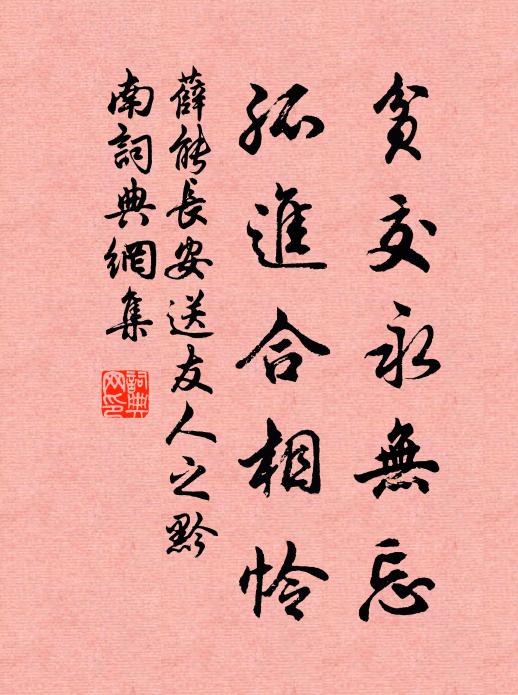 貧交永無忘
孤進合相怜
薛能長安送友人之黔
南詞典網集
詞典
网印